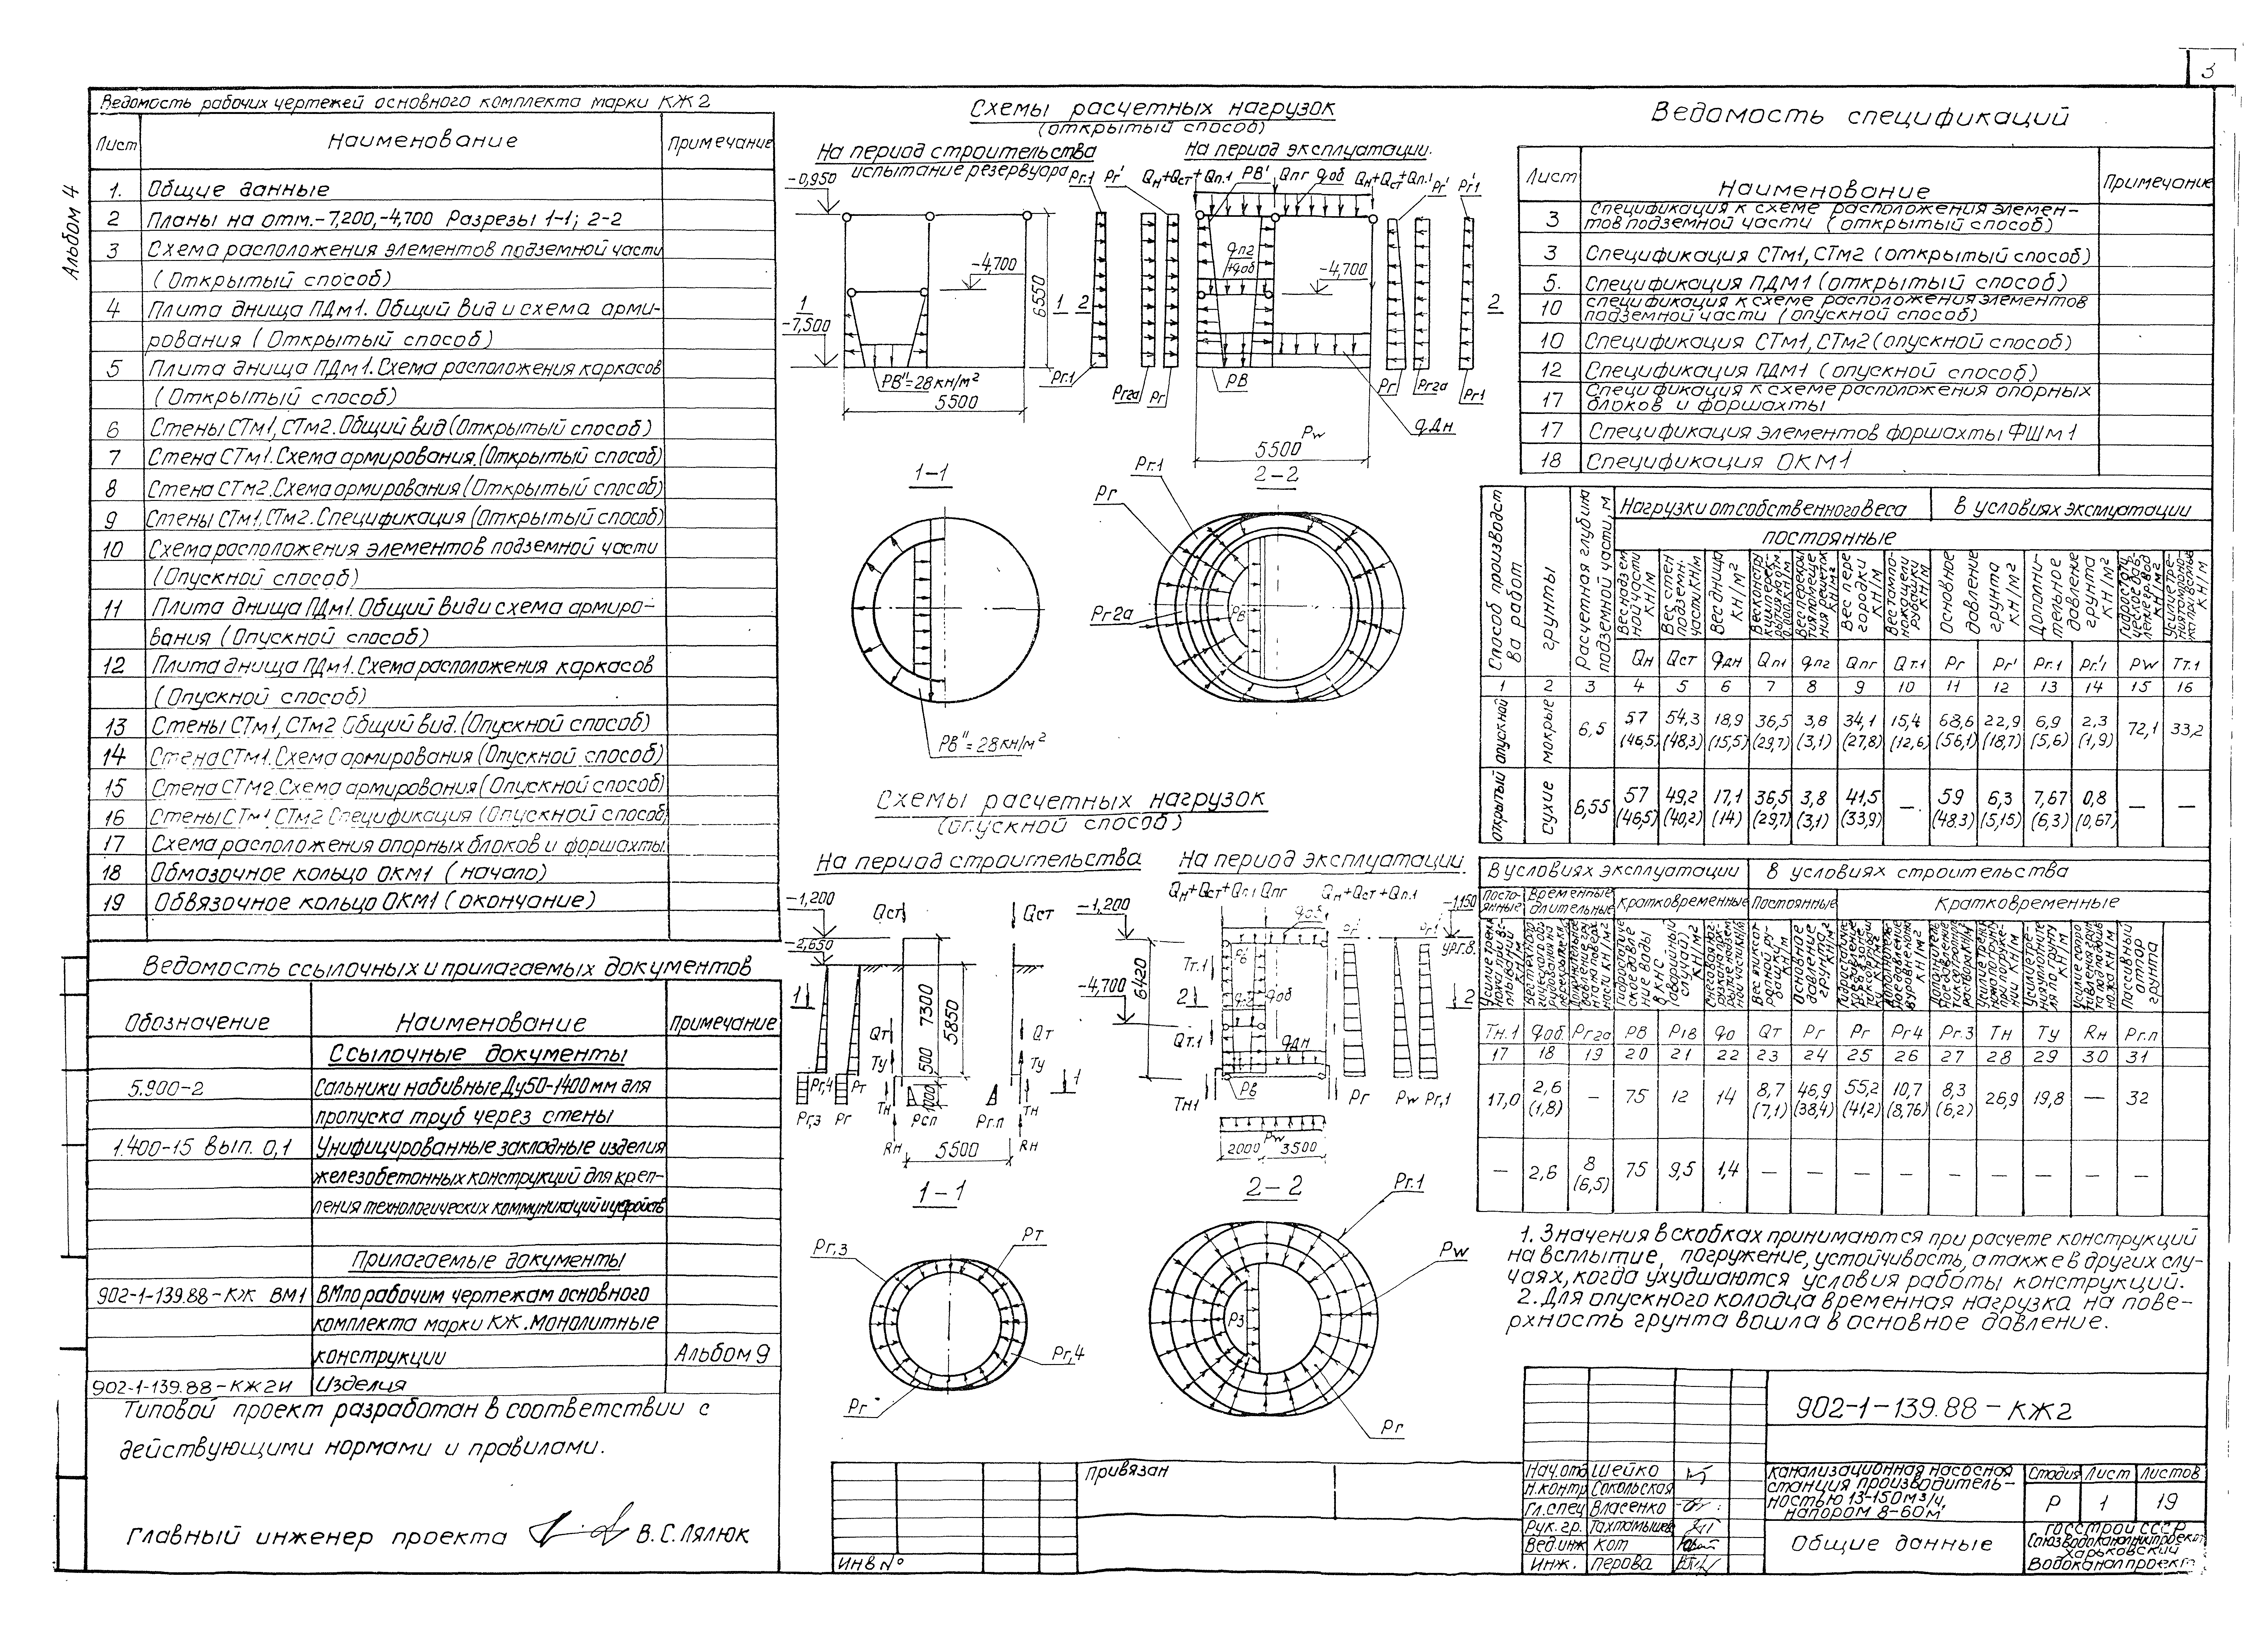 3
Альбом 4
Ведомость рабочих чертежей основного комплекта марки КЖ2
Лист Наименование Примечание
1. Общие данные
2 Планы на отм.-7,200,-4,700 Разрезы 1-1; 2-2
3 Схема расположения элементов подземной части
(Открытый способ)
4 Плита днища ПДм1. Общий вид и схема арми-
рования (Открытый способ)
5 Плита днища ПДм1. Схема расположения каркасов
(Открытый способ)
6 Стены СТм1, СТм2. Общий вид (Открытый способ)
7 Стена СТм1. Схема армирования. (Открытый способ)
8 Стена СТм2. Схема армирования (Открытый способ)
9 Стены СТм1, СТм2. Спецификация (Открытый способ)
10 Схема расположения элементов подземной части
(Опускной способ)
11 Плита днища ПДм1. Общий вид и схема армиро-
вания (Опускной способ)
12 Плита днища ПДм1. Схема расположения каркасов
(Опускной способ)
13 Стены СТм1, СТм2 Общий вид. (Опускной способ)
14 Стена СТм1. Схема армирования (Опускной способ)
15 Стена СТм2. Схема армирования (Опускной способ)
16 Стены СТм1, СТм2 Спецификация (Опускной способ)
17 Схема расположения опорных блоков и форшахты.
18 Обмазочное кольцо ОКМ1 (начало)
19 Обвязочное кольцо ОКМ1 (окончание)
Ведомость ссылочных и прилагаемых документов
Обозначение Наименование Примечание
Ссылочные документы
5.900-2 Сальники набивные Ду50-1400мм для
пропуска труб через стены
1.400-15 вып. 0,1 Унифицированные закладные изделия
железобетонных конструкций для креп-
ления технологических коммуникаций и устройств
Прилагаемые документы
902-1-139.88-КЖ ВМ1 ВМ по рабочим чертежам основного
комплекта марки КЖ. Монолитные
конструкции Альбом 9
902-1-139.88-КЖ2И Изделия
Типовой проект разработан в соответствии с
действующими нормами и правилами.
Главный инженер проекта В.С.Лялюк
Схемы расчетных нагрузок
(открытый способ)
На период строительства
испытание резервуара
На период эксплуатации.
-0,950 Рг.1 Рг' Qн+Qст+Qп.1 РВ' Qпг qоб Qн+Qст+Qп.1 Рг' Рг'1
-4,700 qп2 +qоб -4,700
6550
1 1 2 2
-7,500
РВ''=28кн/м²
5500
Рг.1 Рг2а Рг РВ Рг Рг2а Рг1
qдн
Рw
5500
1-1 2-2
Рг.1
Рг
Рг2а
РВ
РВ''=28кн/м²
Схемы расчетных нагрузок
(опускной способ)
На период строительства На период эксплуатации.
Qн+Qст+Qп.1 Qпг Qн+Qст+Qп.1
-1,200 Qст Qст -1,200 qоб -1,150
-2,650 Рг' Рг' ур.г.в.
7300 5850 6420
Тт.1
1 -4,700 2 qоб 2
Qт Qт Qт.1
Ту 500 Ту qдн
1
Рг,4 Рт Тн 1000 Тн Тн1 Рв
Рг,3 Рг Рсп Рг.п Рг Рw Рг,1
Rн 5500 Rн 2000 Рw 3500
1-1 2-2
Рг,3 Рт
Рг,4
Рг
Рг.1
Рw
Р3
Рг
Ведомость спецификаций
Лист Наименование Примечание
3 Спецификация к схеме расположения элемен-
тов подземной части (открытый способ)
3 Спецификация СТм1, СТм2 (открытый способ)
5. Спецификация ПДм1 (открытый способ)
10 спецификация к схеме расположения элементов
подземной части (опускной способ)
10 Спецификация СТм1, СТм2 (опускной способ)
12 Спецификация ПДм1 (опускной способ)
17 Спецификация к схеме расположения опорных
блоков и форшахты
17 Спецификация элементов форшахты ФШм1
18 Спецификация ОКМ1
Способ производст
ва работ
грунты
Расчетная глубина
подземной части, м
Нагрузки от собственного веса в условиях эксплуатации
постоянные
Вес надзем
ной части
кн/м
Вес стен
подземн.
части, кн/м
Вес днища
кн/м²
Вес пере
городки
кн/м
Основное
давление
грунта
кн/м²
Дополни-
тельное
давление
грунта
кн/м²
Qн Qст qдн Qп1 qп2 Qпг Qт.1 Рг Рг' Рг.1 Рг'1 Рw Тт.1
1 2 3 4 5 6 7 8 9 10 11 12 13 14 15 16
опускной мокрые 6,5 57 54,3 18,9 36,5 3,8 34,1 15,4 68,6 22,9 6,9 2,3 72,1 33,2
(46,5) (48,3) (15,5) (29,7) (3,1) (27,8) (12,6) (56,1) (18,7) (5,6) (1,9)
открытый сухие 6,55 57 49,2 17,1 36,5 3,8 41,5 — 59 6,3 7,67 0,8 — —
(46,5) (40,2) (14) (29,7) (3,1) (33,9) (48.3) (5,15) (6,3) (0,67)
В условиях эксплуатации в условиях строительства
Посто-
янные
Временные
длительные
Кратковременные Постоянные Кратковременные
Пассивный
отпор
грунта
Тн.1 qоб. Рг2а РВ Р1в qо Qт Рг Рг Рг4 Рг.3 Тн Ту Rн Рг.п
17 18 19 20 21 22 23 24 25 26 27 28 29 30 31
17,0 2,6 — 75 12 14 8,7 46,9 55,2 10,7 8,3 26,9 19,8 — 32
(1,8) (7,1) (38,4) (41,2) (8,76) (6,2)
— 2,6 8 75 9,5 1,4 — — — — — — — — —
(6,5)
1. Значения в скобках принимаются при расчете конструкций
на всплытие, погружение, устойчивость, а также в других слу-
чаях, когда ухудшаются условия работы конструкций.
2. Для опускного колодца временная нагрузка на пове-
рхность грунта вошла в основное давление.
902-1-139.88-КЖ2
Привязан
Инв №
Нач.отд Шейко
Н.контр Сокольская
Гл.спец Власенко
Рук.гр. Тахтамышев
Вед.инж Кот
Инж. Перова
канализационная насосная
станция производитель-
ностью 13-150м3/ч,
напором 8-60м
Стадия Лист Листов
Р 1 19
Общие данные
Госстрой СССР
Союзводоканалниипроект
Харьковский
Водоканалпроект